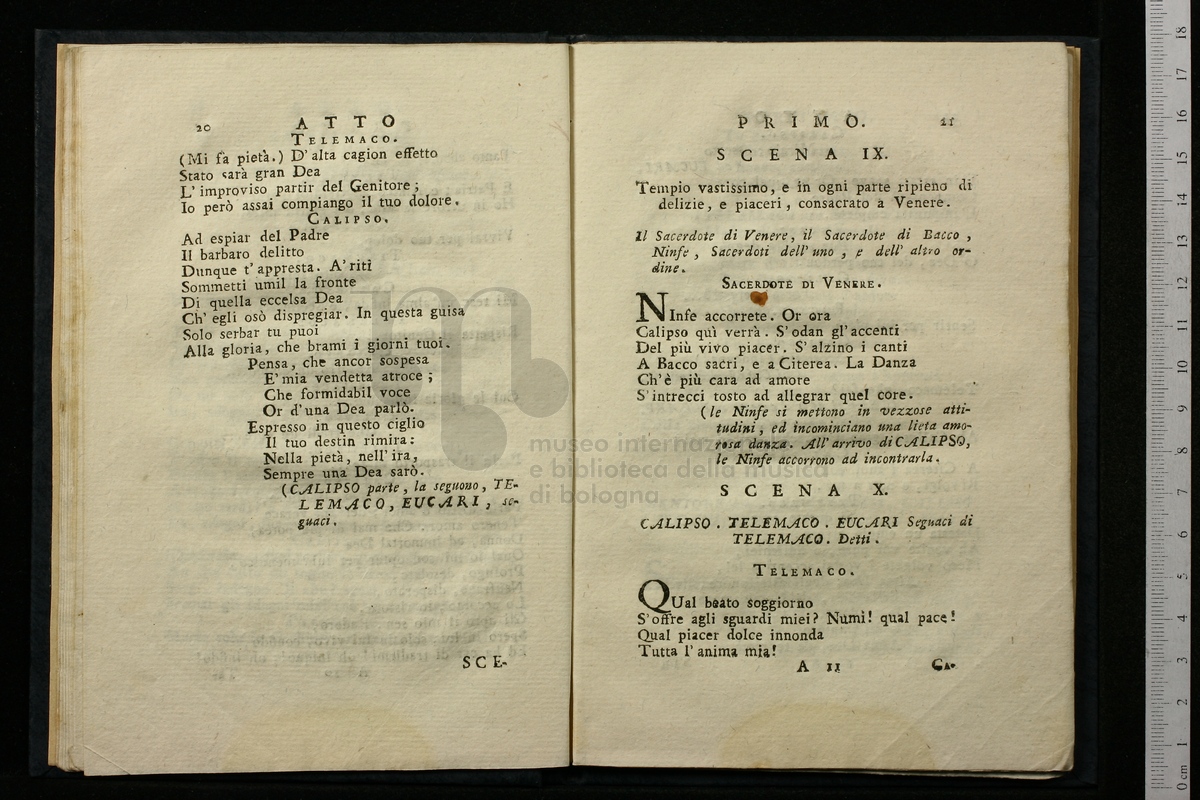 20
ATTO
TELEMACO.
(Mi fa pietà.) D'alta cagion effetto
Stato sarà gran Dea
L'improviso partir del Genitore;
Io però assai compiango il tuo dolore.
CALIPSO.
Ad espiar del Padre
Il barbaro delitto
Dunque t'appresta. A'riti
Sommetti umil la fronte
Di quella eccelsa Dea
Ch'egli osò dispregiar. In questa guisa
Solo serbar tu puoi
Alla gloria, che brami i giorni tuoi.
Pensa, che ancor sospesa
E'mia vendetta atroce;
Che formidabil voce
Or d'una Dea parlò.
Espresso in questo ciglio
Il tuo destin rimira:
Nella pietà, nell'ira,
Sempre una Dea sarò.
(CALIPSO parte, la seguono, TE-
LEMACO, EUCARI, se-
guaci.
SCE-
PRIMO.
21
SCENA IX.
Tempio vastissimo, e in ogni parte ripieno di
delizie, e piaceri, consacrato a Venere.
Il Sacerdote di Venere, il Sacerdote di Bacco,
Ninfe, Sacerdoti dell'uno, e dell'altro or-
dine.
SACERDOTE DI VENERE.
NInfe accorrete. Or ora
Calipso quì verrà. S'odan gl'accenti
Del più vivo piacer. S'alzino i canti
A Bacco sacri, e a Citerea. La Danza
Ch'è più cara ad amore
S'intrecci tosto ad allegrar quel core.
(le Ninfe si mettono in vezzose atti-
tudini, ed incominciano una lieta amo-
rosa danza. All'arrivo di CALIPSO,
le Ninfe accorrono ad incontrarla.
SCENA X.
CALIPSO. TELEMACO. EUCARI Seguaci di
TELEMACO. Detti.
TELEMACO.
QUal beato soggiorno
S'offre agli sguardi miei? Numi! qual pace!
Qual piacer dolce innonda
Tutta l'anima mia!
A 11
Ca-
museo internaz
e biblioteca della musica
di bologna
0 cm 1 2 3 4 5 6 7 8 9 10 11 12 13 14 15 16 17 18